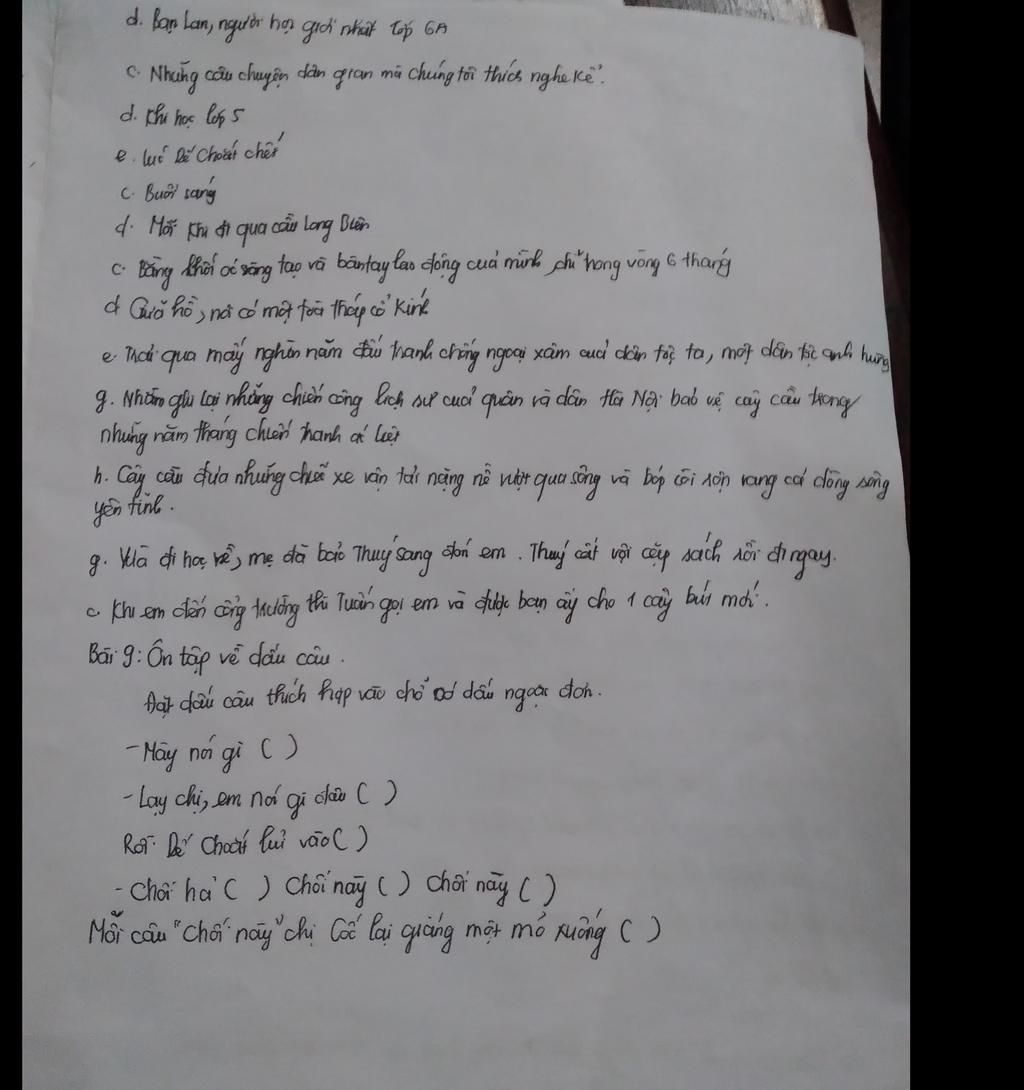 d. Bạn Lan, người học giỏi nhất lớp 6A
c. Những câu chuyện dân gian mà chúng tôi thích nghe kể.
d. Khi học lớp 5
e. Lúc Dế Choắt chết
c. Buổi sáng
d. Mỗi khi đi qua cầu Long Biên
c. Bằng khối óc sáng tạo và bàn tay lao động của mình, chỉ trong vòng 6 tháng
d. Giữa hồ, nơi có một toà tháp cổ kính
e. Trải qua mấy nghìn năm đấu tranh chống ngoại xâm của dân tộc ta, một dân tộc anh hùng
g. Nhằm ghi lại những chiến công lịch sử của quân và dân Hà Nội bảo vệ cây cầu trong
những năm tháng chiến tranh ác liệt
h. Cây cầu đưa những chiếc xe vận tải nặng nề vượt qua sông và bóp còi rộn vang cả dòng sông
yên tĩnh.
g. Vừa đi học về, mẹ đã bảo Thuý sang đón em. Thuý cất vội cặp sách rồi đi ngay.
c. Khi em đến cổng trường thì Tuấn gọi em và được bạn ấy cho 1 cây bút mới.
Bài 9: Ôn tập về dấu câu.
Đặt dấu câu thích hợp vào chỗ có dấu ngoặc đơn.
- Mày nói gì ( )
- Lạy chị, em nói gì đâu ( )
Rồi Dế Choắt lủi vào ( )
- Chối hả ( ) Chối này ( ) Chối này ( )
Mỗi câu "Chối này" chị Cốc lại giáng một mỏ xuống ( )